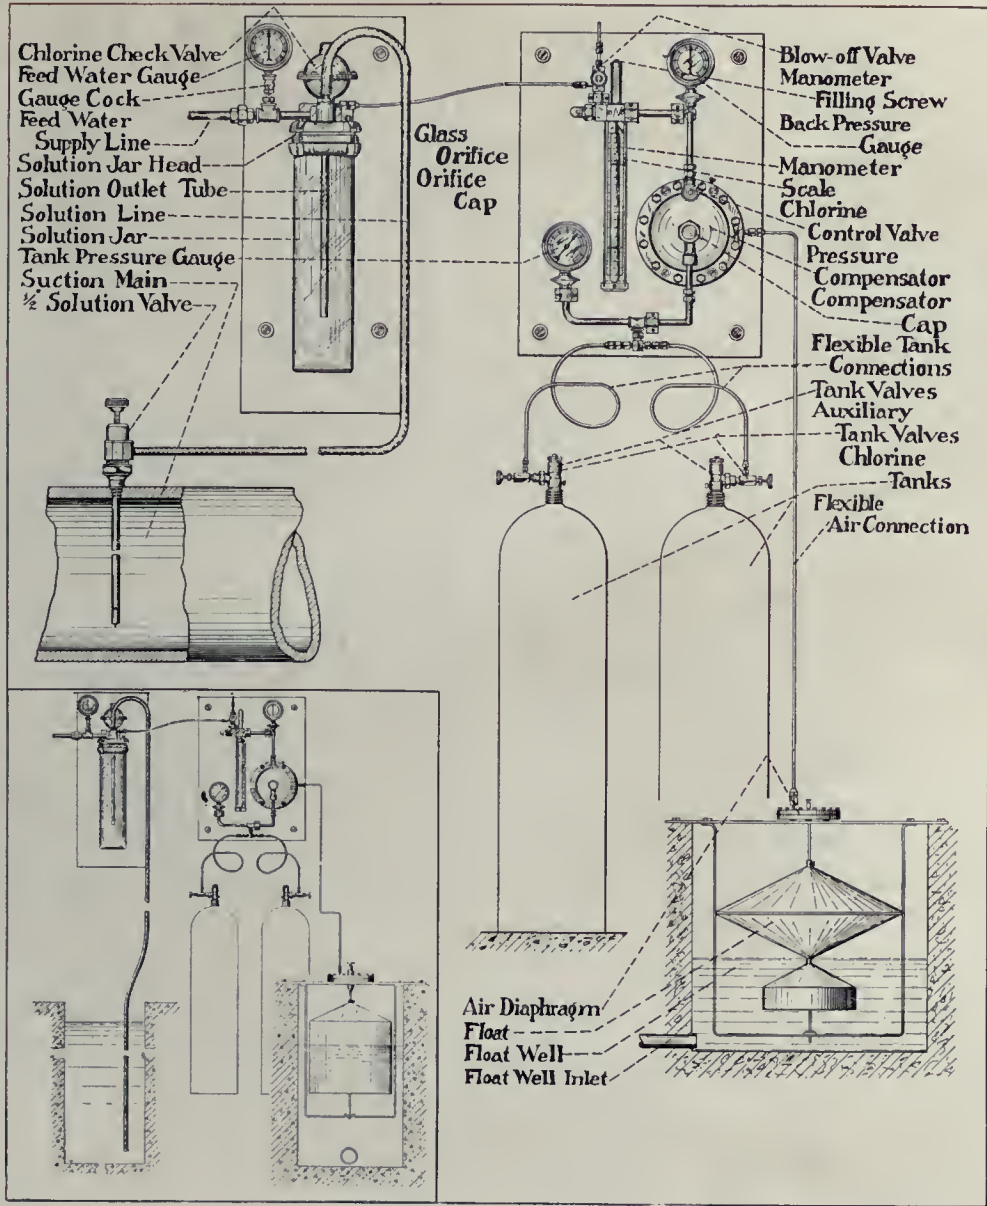 Chlorine Check Valve
Feed Water Gauge
Gauge Cock
Feed Water
Supply Line
Solution Jar Head
Solution Outlet Tube
Solution Line
Solution Jar
Tank Pressure Gauge
Suction Main
½" Solution Valve
Glass
Orifice
Orifice
Cap
Blow-off Valve
Manometer
Filling Screw
Back Pressure
Gauge
Manometer
Scale
Chlorine
Control Valve
Pressure
Compensator
Compensator
Cap
Flexible Tank
Connections
Tank Valves
Auxiliary
Tank Valves
Chlorine
Tanks
Flexible
Air Connection
Air Diaphragm
Float
Float Well
Float Well Inlet